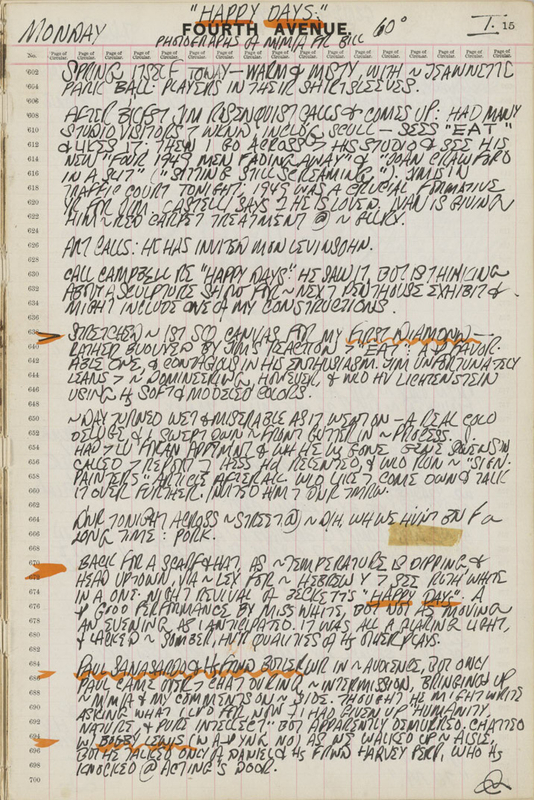 "HAPPY DAYS."
FOURTH AVENUE.
MONDAY
PHOTOGRAPHS of MIMI BY BILL 60°
I. 15
No. Page of Circular. Page of Circular. Page of Circular. Page of Circular. Page of Circular. Page of Circular. Page of Circular. Page of Circular. Page of Circular. Page of Circular. Page of Circular. Page of Circular. Page of Circular. Page of Circular. Page of Circular. Page of Circular.
602 SPRING ITSELF TODAY — WARM & MISTY, WITH ~ JEANNETTE
604 PARK BALL PLAYERS IN THEIR SHIRTSLEEVES.
606
608 AFTER BKFST JIM ROSENQUIST CALLS & COMES UP: HAD MANY
610 STUDIO VISITORS > WKND INCLDG SCULL — SEES "EAT"
612 & LIKES IT; THEN I GO ACROSS > HIS STUDIO & SEE HIS
NEW "FOUR 1949 MEN FADING AWAY" & "JOAN CRAWFORD
614 IN A SLIT" ("SITTING STILL SCREAMING"). JIM IS IN
616
618 TRAFFIC COURT TONIGHT; 1949 WAS A CRUCIAL FORMATIVE
620 YR FOR JIM. CASTELLI SAYS HE IS LOVED. IVAN IS GIVING
622 HIM ~ RED CARPET TREATMENT @ ~ GLLRY.
624
626 ART CALLS: HE HAS INVITED MON LEVINSOHN.
628
630 CALL CAMPBELL RE "HAPPY DAYS". HE SAW IT, BUT IS THINKING
632 ABOUT A SCULPTURE SHOW FOR ~ NEXT PENTHOUSE EXHIBIT &
634 MIGHT INCLUDE ONE OF MY CONSTRUCTIONS.
636
638 STRETCHED ~ 1ST 5FT CANVAS FOR MY FIRST DIAMOND —
640 RATHER BUOYED BY JIM'S REACTION > "EAT": A FAVOR-
642 ABLE ONE, & CONTAGIOUS IN HIS ENTHUSIASM. JIM UNFORTUNATELY
644 LEANS > ~ DOMINEERING, HOWEVER, & WLD HV LICHTENSTEIN
646 USING HS SOFT & MODELED COLORS.
648
650 ~ DAY TURNED WET & MISERABLE AS IT WENT ON — A REAL COLD
652 DELUGE, & I SWEPT DOWN ~ FRONT GUTTER IN ~ PROCESS.
654 HAD > AN APPTMENT & WH HE WS GONE GENE SWENSON
656 CALLED > REPORT > HESS HD RELENTED, & WLD RUN ~ "SIGN
658 PAINTERS" ARTICLE AFTER ALL WLD LIKE > COME DOWN & TALK
660 IT OVER FURTHER. INVITED HIM > DNR TMRW.
662
664 DNR TONIGHT ACROSS ~ STREET @ ~ D/H. WH WE HVNT BN F a
666 LONG TIME: PORK.
668
670 BACK FOR A SCARF & HAT, AS ~ TEMPERATURE IS DIPPING &
672 HEAD UPTOWN, VIA ~ LEX FOR ~ HEBREW Y > SEE RUTH WHITE
674 IN A ONE-NIGHT REVIVAL OF BECKETT'S "HAPPY DAYS". A
676 GOOD PERFORMANCE BY MISS WHITE, BUT MOVING
678 AN EVENING AS I ANTICIPATED. IT WAS ALL A GLARING LIGHT,
680 & LACKED ~ SOMBER, INTR QUALITIES OF HS OTHER PLAYS.
682
684 PAUL SANASARDO & HS FRIEND BUTLER WR IN ~ AUDIENCE, BUT ONLY
686 PAUL CAME OVER > CHAT DURING ~ INTERMISSION, BRINGING UP
688 ~ MIMI & MY COMMENTS ON ~ SIDE. THOUGHT HE MIGHT WRITE
690 ASKING WHAT I LVD FOR NOW I HAD GIVEN UP "HUMANITY,
692 NATURE & PURE INTELLECT" BUT APPARENTLY DEMURRED. CHATTED
694 W BOBBY LEWIS (W A YNK NO) AS WS WALKED UP ~ AISLE,
696 BUT HE TALKED ONLY DANIEL & HS FRND HARVEY PERR, WHO HS
698 KNOCKED @ ACTING'S DOOR.
700